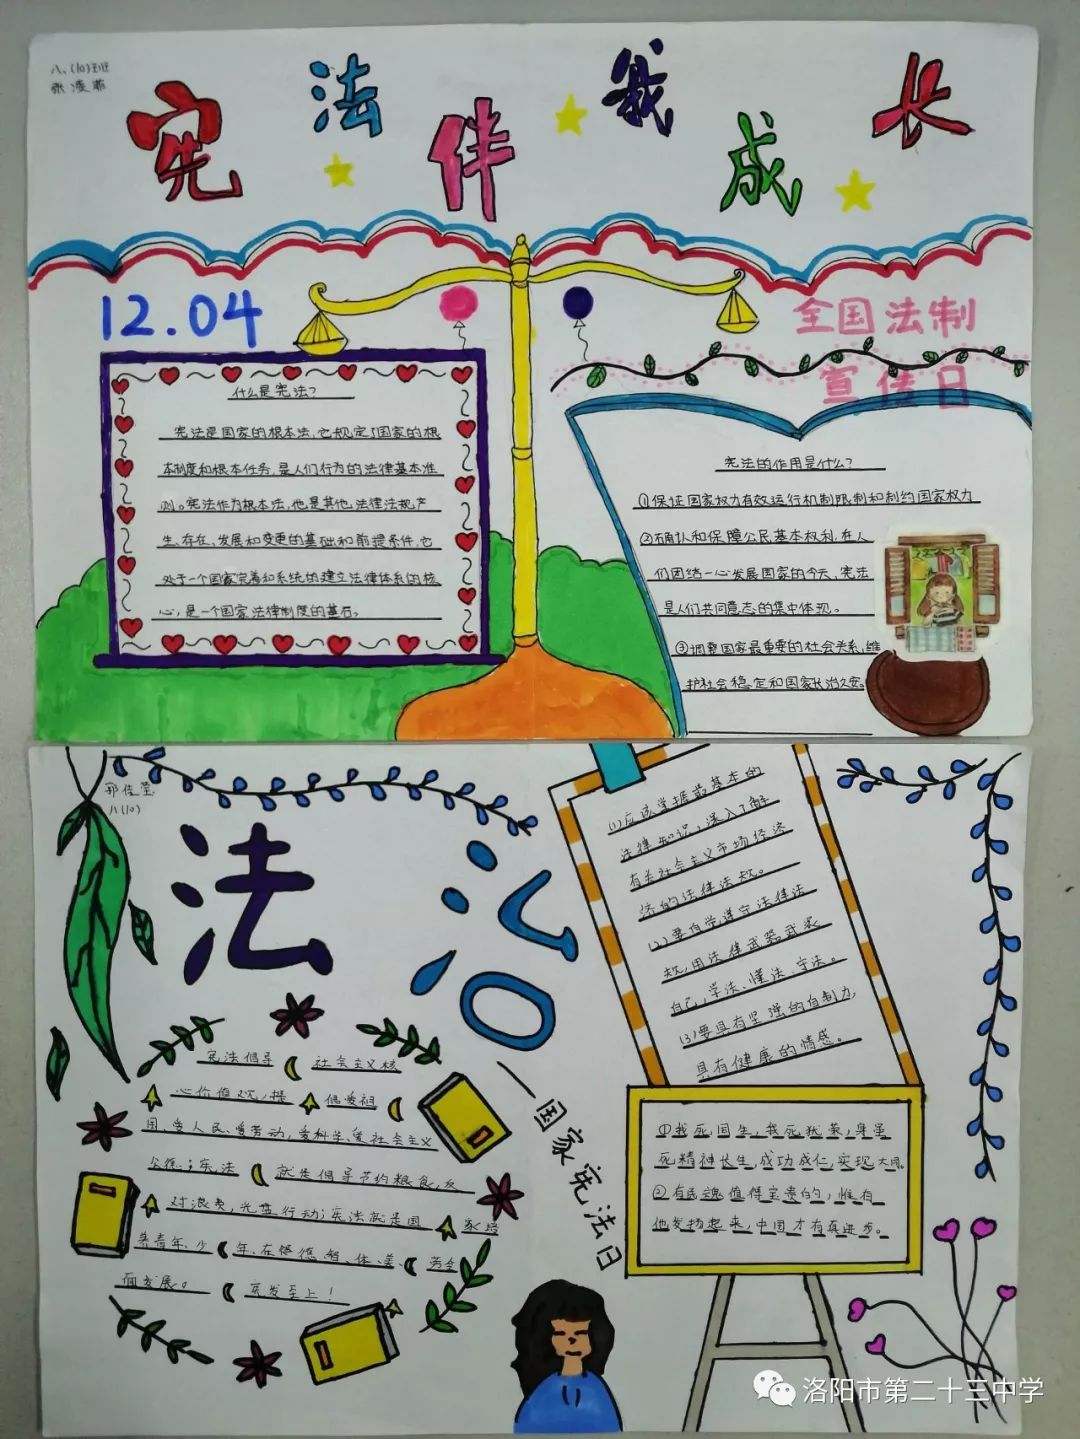 八、(10)班
张凌菲
宪法伴我成长
12.04
全国法制
宣传日
什么是宪法?
宪法是国家的根本法,它规定了国家的根
本制度和根本任务,是人们行为的法律基本准
则。宪法作为根本法,他是其他法律法规产
生、存在、发展和变更的基础和前提条件,它
处于一个国家完善和系统的建立法律体系的核
心,是一个国家法律制度的基石。
宪法的作用是什么?
①保证国家权力有效运行机制限制和制约国家权力
②确认和保障公民基本权利,在人
们团结一心发展国家的今天,宪法
是人们共同意志的集中体现。
③调整国家最重要的社会关系,维
护社会稳定和国家长治久安。
八(10)
法治
——国家宪法日
(1)应该掌握最基本的
法律知识,深入了解
有关社会主义市场经济
济的法律法规。
(2)要自觉遵守法律法
规,用法律武器武装
自己,学法、懂法、守法。
(3)要具有坚强的自制力,
具有健康的情感。
宪法倡导 社会主义核
心价值观,提 倡爱祖
国、爱人民、爱劳动,爱科学、爱社会主义
公德;宪法 就是倡导节约粮食,反
对浪费,光盘行动;宪法就是国 家培
养青年、少 年、在 德、智、体、美、 劳全
面发展。 至上!
①我死国生,我死犹荣,身虽
死精神长生,成功成仁,实现大同。
②有民魂值得宝贵的,惟有
他发扬起来,中国才有真进步。
洛阳市第二十三中学